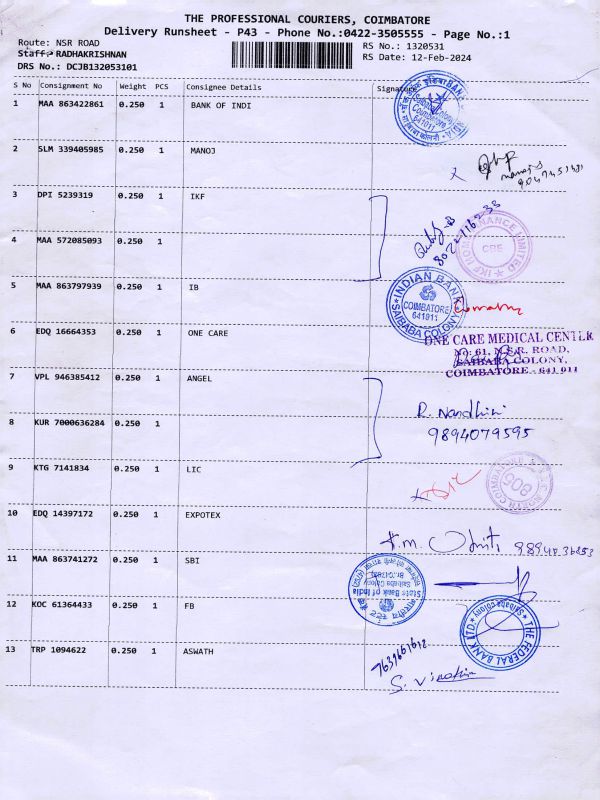 THE PROFESSIONAL COURIERS, COIMBATORE
Delivery Runsheet - P43 - Phone No.:0422-3505555 - Page No.:1
Route: NSR ROAD
RS No.: 1320531
Staff: RADHAKRISHNAN
RS Date: 12-Feb-2024
DRS No.: DCJB132053101
S No Consignment No Weight PCS Consignee Details Signature
1 MAA 863422861 0.250 1 BANK OF INDI
Saibaba Colony
Coimbatore
641011
2 SLM 339405985 0.250 1 MANOJ
3 DPI 5239319 0.250 1 IKF
4 MAA 572085093 0.250 1
IKF HOME FINANCE LIMITED
CBE
5 MAA 863797939 0.250 1 IB
INDIAN BANK
COIMBATORE
641011
SAIBABA COLONY
6 EDQ 16664353 0.250 1 ONE CARE
ONE CARE MEDICAL CENTER
No: 61, N.S.R. ROAD,
SAIBABA COLONY,
COIMBATORE - 641 011
7 VPL 946385412 0.250 1 ANGEL
R. Nandhini
9894079595
8 KUR 7000636284 0.250 1
9 KTG 7141834 0.250 1 LIC
508
10 EDQ 14397172 0.250 1 EXPOTEX
11 MAA 863741272 0.250 1 SBI
State Bank of India
12 KOC 61364433 0.250 1 FB
THE FEDERAL BANK LTD.
Saibaba Colony
13 TRP 1094622 0.250 1 ASWATH